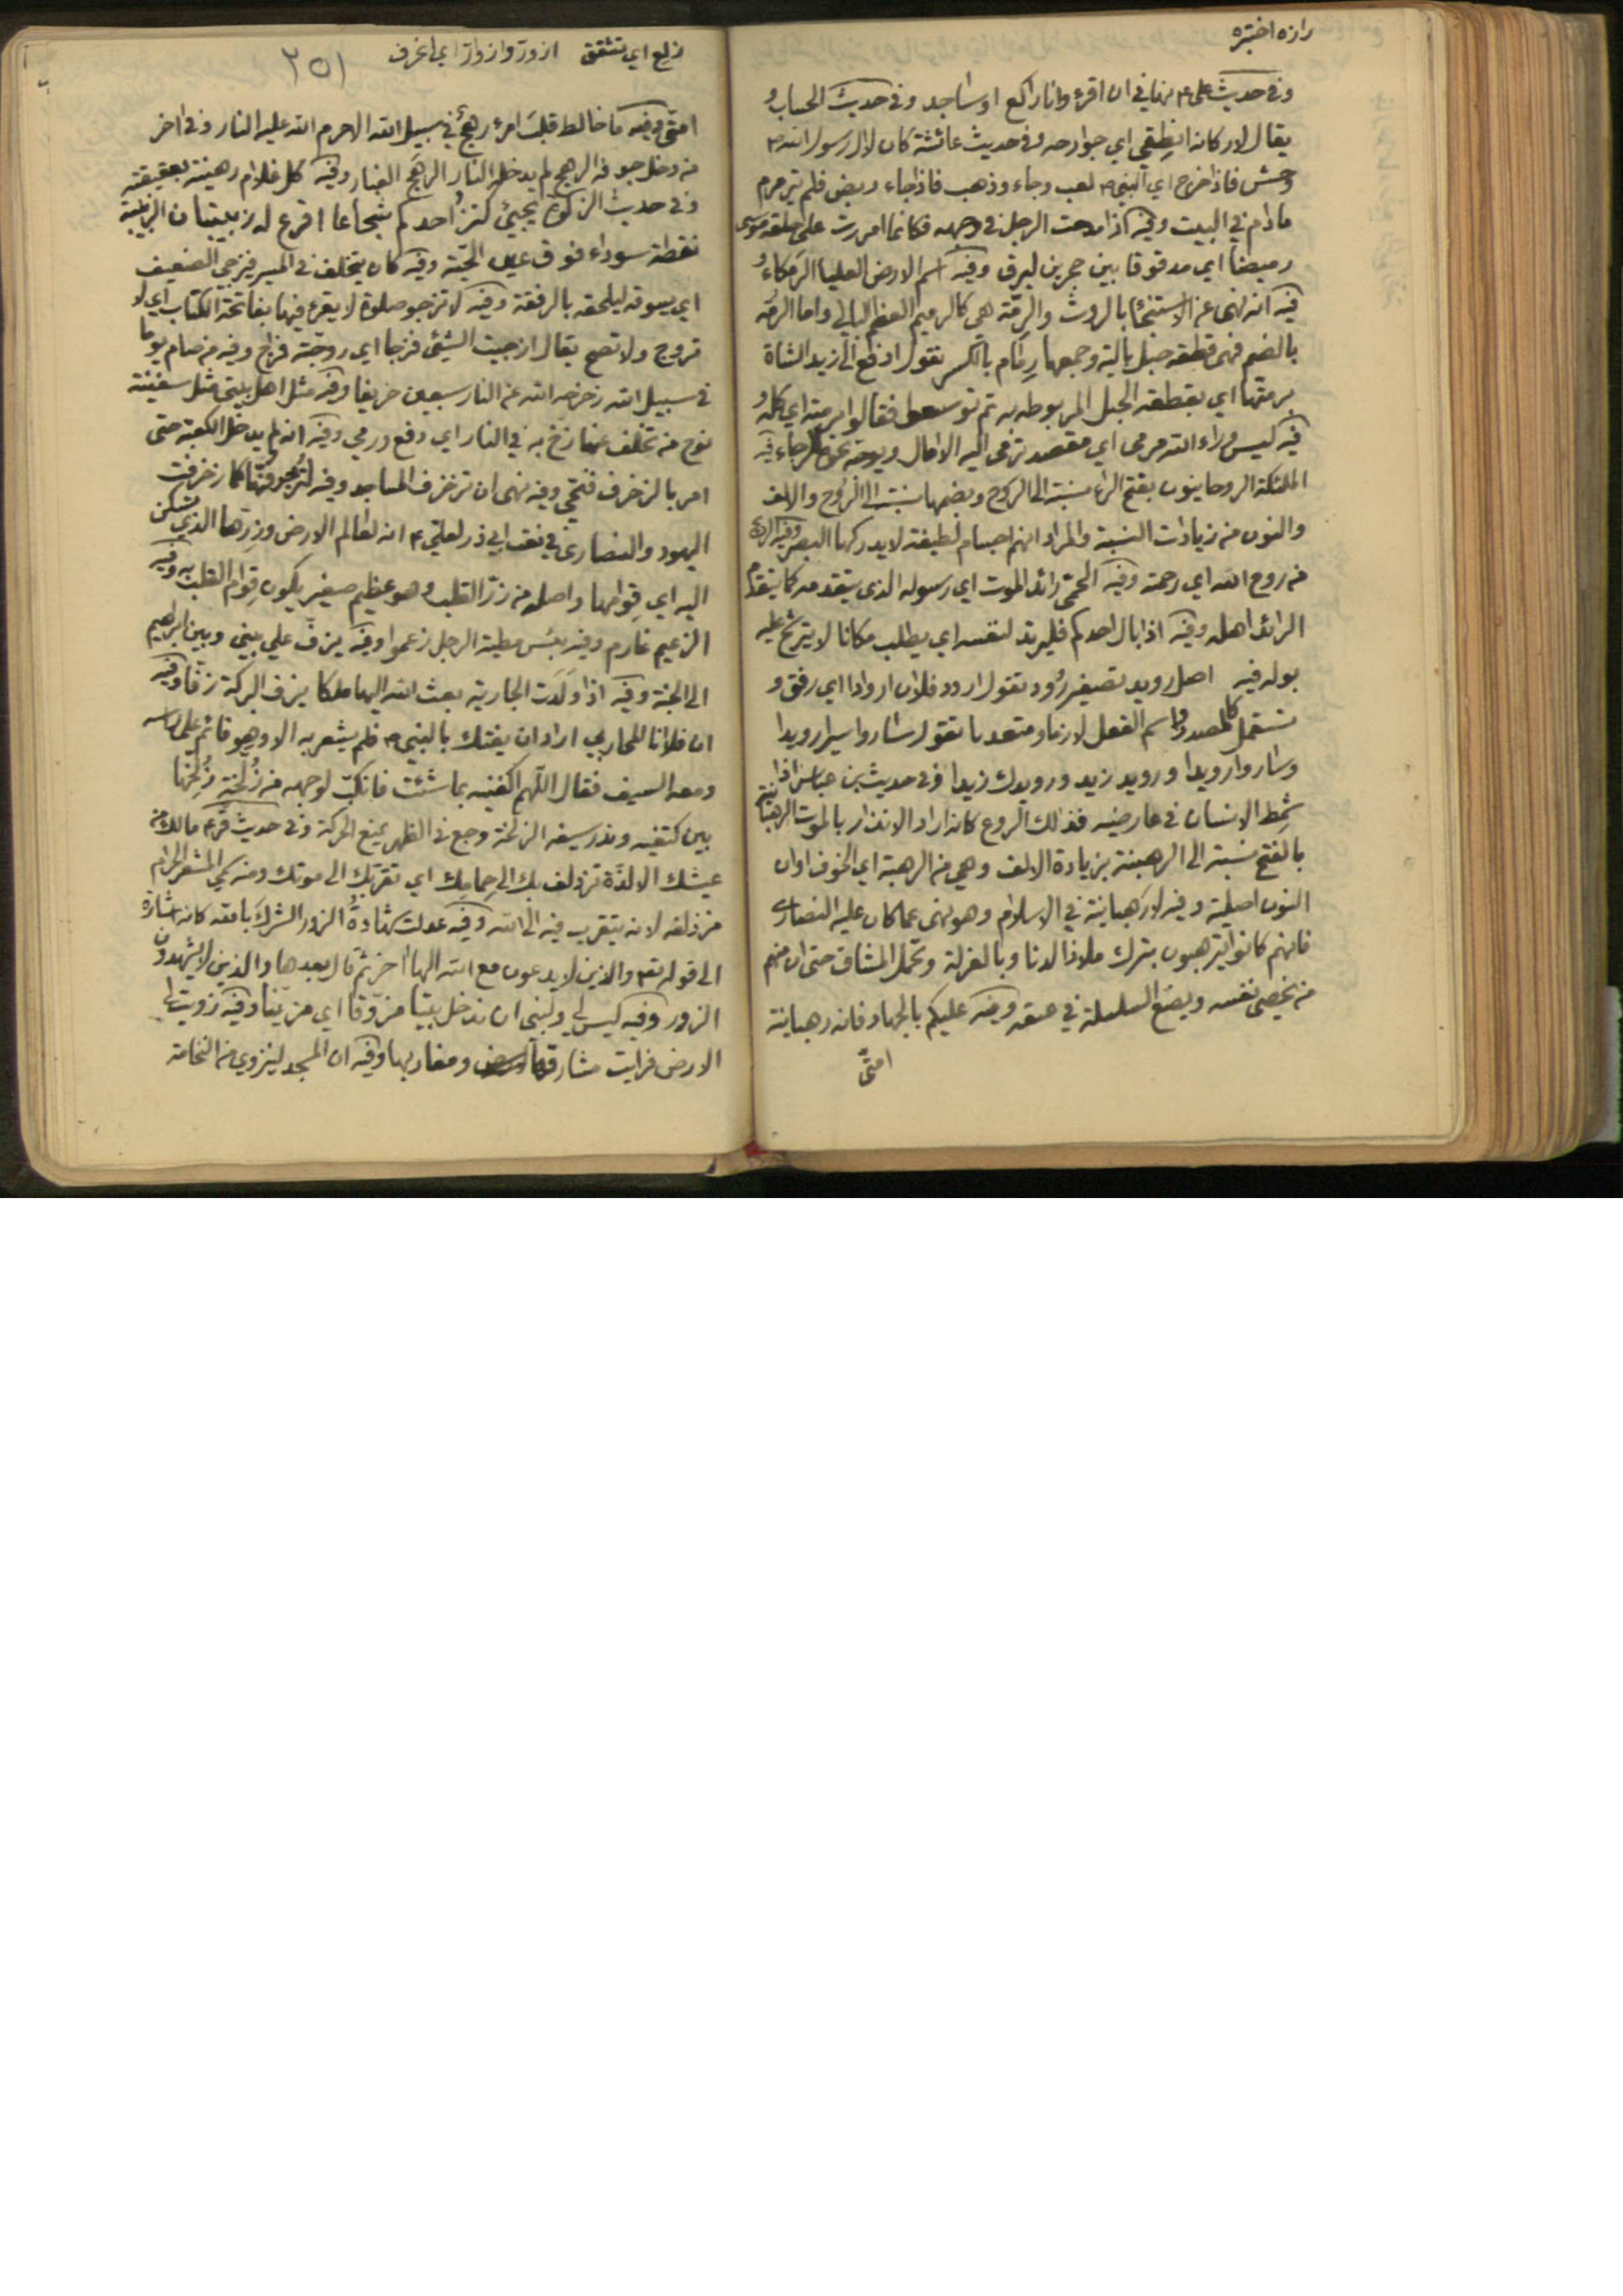 رازه اختبره
وفي حديث علي ع نهاني ان اقرء وانا راكع او ساجد وفي حديث الحساب و
يقال لاركانه انطقي اي جوارحه وفي حديث عائشة كان لال رسول الله ص
وحش فاذا خرج اي النبي ص لعب وجاء وذهب فاذا جاء ربض فلم يترمرم
مادام في البيت وفيه اذا مدحت الرجل في وجهه فكانما امررت على حلقه موسى
رميضا اي مدقوقا بين حجرين ليرق وفيه اسم الارض العليا الرمكاء و
فيه انه نهى عن الاستنجا بالروث والرمة هي كالرميم العظم البالي واما الرمة
بالضم فهى قطعة حبل بالية وجمعها رمام بالكسر تقول ادفع الى زيد الشاة
برمتها اي بقطعة الحبل المربوطه به ثم توسعوا فقالوا برمته اي كله و
فيه ليس وراء الله مرمى اي مقصد ترمى اليه الامال ويوجه نحوه الرجاء فيه
الملئكة الروحانيون بفتح الراء نسبة الى الروح وبضمها نسبت الى الروح والالف
والنون من زيادات النسبة والمراد انهم اجسام لطيفة لايدركها البصر وفيه الرؤيا
من روح الله اي رحمة وفيه الحمى رائد الموت اي رسوله الذي يتقدمه كما يتقدم
الرائد اهله وفيه اذا بال احدكم فليرتد لنفسه اي يطلب مكانا لا يترشح عليه
بوله فيه اصل رويد تصغير رود تقول ارود فلان اروادا اي رفق و
تستعمل كالمصدر واسم الفعل لازما ومتعديا تقول ساروا سيرا رويدا
وساروا رويدا ورويد زيد ورويدك زيدا وفي حديث بن عباس اذا
شمط الانسان في عارضيه فذلك الروع كانه اراد الانذار بالموت الرهبانية
بالفتح نسبة الى الرهبنة بزيادة الالف وهي من الرهبة اي الخوف اوان
النون اصلية وفيه لارهبانية في الاسلام وهو نهى عما كان عليه النصارى
فانهم كانوا يترهبون بترك ملاذ الدنا وبالعزلة وتحمل المشاق حتى ان منهم
من يخصي نفسه ويضع السلسلة في عنقه وفيه عليكم بالجهاد فانه رهبانية
امتي
زلع اي تشقق ازور وازوار اي انحرف ٢٥١
امتي وفيه ما خالط قلب امرء رهج في سبيل الله الا حرم الله عليه النار وفي اخر
من دخل جوفه الرهج لم يدخل النار الرهج الغبار وفيه كل غلام رهينة بعقيقته
وفي حديث الزكوة يجيئ كنز احدكم شجاعا اقرع له زبيبتان الزبيبة
نقطة سوداء فوق عين الحية وفيه كان يتخلف في المسير فيزجي الضعيف
اي يسوقه ليلحقه بالرفقة وفيه لا تزجو صلوة لا يقرء فيها بفاتحة الكتاب اي لا
تروج ولا تصح يقال ازجيت الشيئ فزجا اي روجته فراج وفيه من صام يوما
في سبيل الله زحزحه الله عن النار سبعين خريفا وفيه مثل اهل بيتي مثل سفينة
نوح من تخلف عنها زخ به في النار اي دفع ورمي وفيه انه لم يدخل الكعبة حتى
امر بالزخرف فنحي وفيه نهى ان تزخرف المساجد وفيه لتزخرفنها كما زخرفت
اليهود والنصارى في نعت ابي ذر لعلي ع انه لعالم الارض وزرها الذي تسكن
اليه اي قوامها واصله من زر القلب وهو عظيم صغير يكون قوام القلب به وفيه
الزعيم غارم وفيه بئس مطية الرجل زعموا وفيه يزف علي بيني وبين ابراهيم
الى الجنة وفيه اذا ولدت الجارية بعث الله اليها ملكا يزف البركة زفا وفيه
ان فلانا المحاربي اراد ان يفتك بالنبي ص فلم يشعر به الا وهو قائم على راسه
ومعه السيف فقال اللهم اكفنيه بما شئت فانكب لوجهه من زلخة زلخها
بين كتفيه وندر سيفه الزلخة وجع في الظهر يمنع الحركة وفي حديث قرء مالك من
عيشك الا لذة تزدلف بك الى حمامك اي تقربك الى موتك ومنه سمي المشعر الحرام
مزدلفه لانه يتقرب فيه الى الله وفيه عدلت شهادة الزور الشرك بالله كانه اشارة
الى قوله تع والذين لا يدعون مع الله الها اخر ثم قال بعدها والذين لا يشهدون
الزور وفيه ليس لي ولنبي ان ندخل بيتا مزوقا اي مزينا وفيه زويت لي
الارض فرايت مشارقها ومغاربها وفيه ان المسجد لينزوي من النخامة